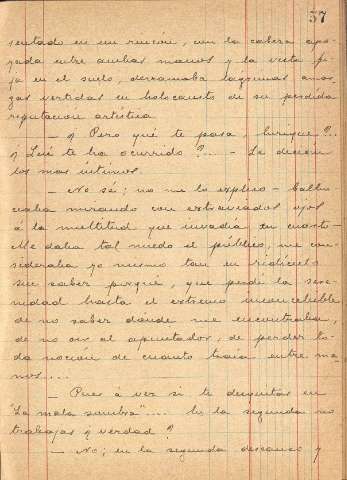 57
sentado en un rincón, con la cabeza apo-
yada entre ambas manos y la vista fi-
ja en el suelo, derramaba lagrimas amar-
gas vertidas en holocausto de su perdida
reputación artística
— ¿Pero qué te pasa, ?..
¿Qué te ha ocurrido?... — Le decian
los mas intimos
— No sé; no me lo explico — balbu-
ciaba mirando con extraviados ojos
á la multitud que invadía su cuarto —
Me daba tal miedo el público, me con-
sideraba yo mismo tan en ridículo
sin saber porque, que perdí la sere-
nidad hasta el extremo inconcebible
de no saber donde me encontraba,
de no oir al apuntador, de perder to-
da noción de cuanto traia entre ma-
nos....
— Pues á ver si te desquitas en
"La mala sombra".... En la segunda no
trabajas ¿verdad?
— No; en la segunda descanso y